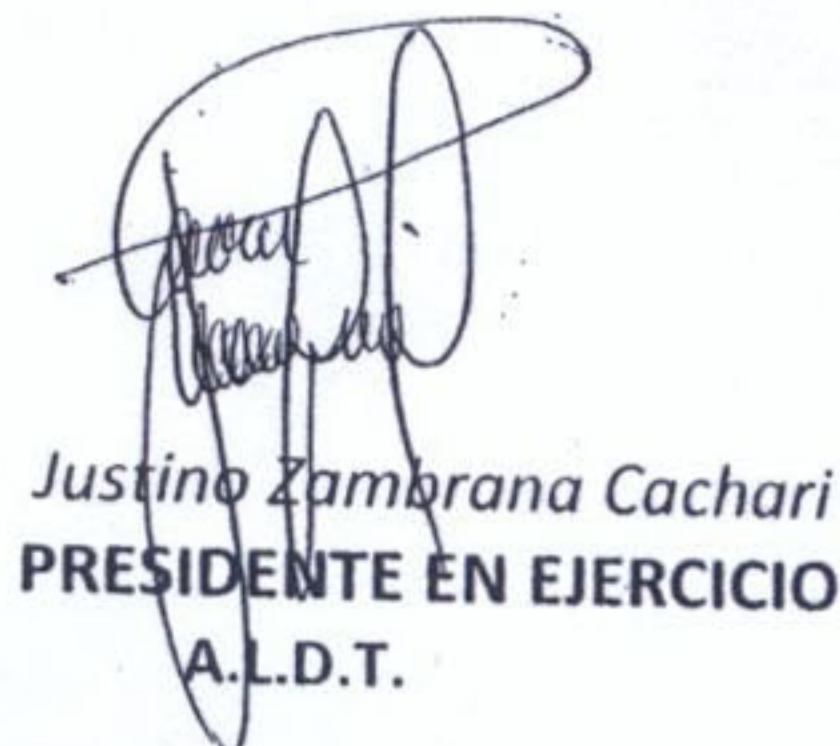 Justino Zambrana Cachari
PRESIDENTE EN EJERCICIO
A.L.D.T.